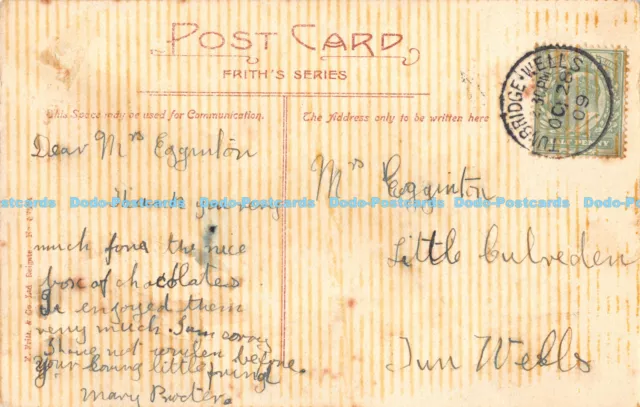 POST CARD
FRITH'S SERIES
This Space may be used for Communication.
The Address only to be written here
TUNBRIDGE·WELLS
30PM
OC 28
09
Dear Mrs Egginton
Thank you very
much for the nice
box of chocolates
I enjoyed them
very much I am sorry
I have not written before.
your loving little friend
Mary Procter.
Mrs Egginton
Little Culverden
Tun Wells
F. Frith & Co. Ltd. Reigate.
Dodo-Postcards Dodo-Postcards Dodo-Postcards Dodo-Postcards Dodo-Postcards
Dodo-Postcards Dodo-Postcards Dodo-Postcards Dodo-Postcards Dodo-Postcards